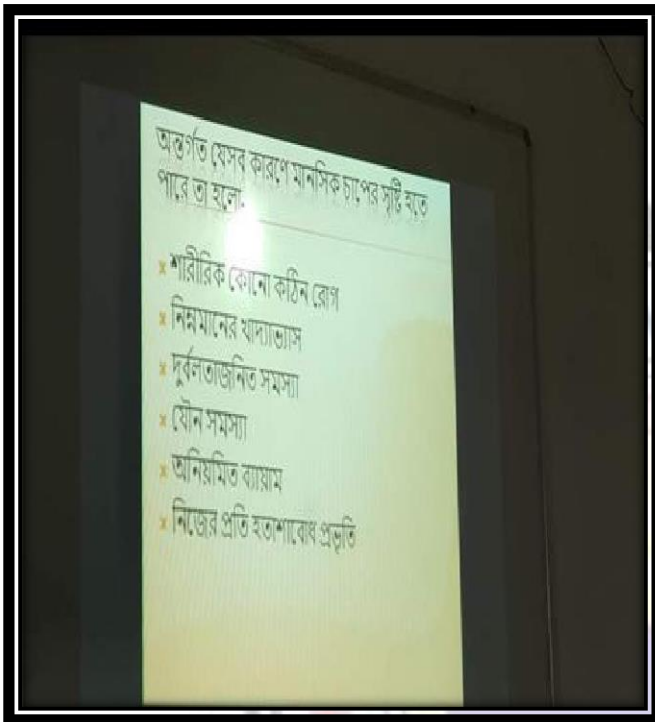 অন্তর্গত যেসব কারণে মানসিক চাপের সৃষ্টি হতে
পারে তা হলো-
x শারীরিক কোনো কঠিন রোগ
x নিম্নমানের খাদ্যাভ্যাস
x দুর্বলতাজনিত সমস্যা
x যৌন সমস্যা
x অনিয়মিত ব্যায়াম
x নিজের প্রতি হতাশাবোধ প্রভৃতি